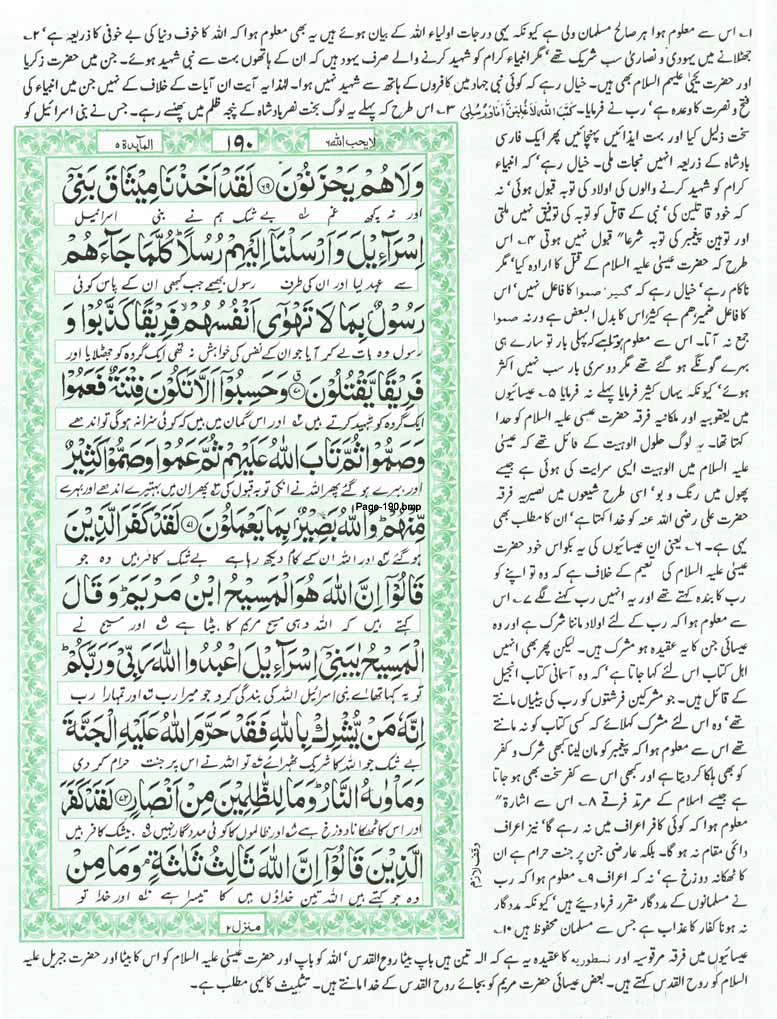 ۱۔ اس سے معلوم ہوا ہر صالح مسلمان ولی ہے کیونکہ یہی درجات اولیاء اللہ کے بیان ہوئے ہیں یہ بھی معلوم ہوا کہ اللہ کا خوف دنیا کی بے خوفی کا ذریعہ ہے' ۲۔
جھٹلانے میں یہودی و نصاریٰ سب شریک تھے' مگر انبیاء کرام کو شہید کرنے والے صرف یہود ہیں کہ ان کے ہاتھوں بہت سے نبی شہید ہوئے۔ جن میں حضرت زکریا
اور حضرت یحییٰ علیہم السلام بھی ہیں۔ خیال رہے کہ کوئی نبی جہاد میں کافروں کے ہاتھ سے شہید نہیں ہوا۔ لہٰذا یہ آیت ان آیات کے خلاف نہیں جن میں انبیاء کی
فتح و نصرت کا وعدہ ہے' رب نے فرمایا۔ كَتَبَ اللّٰهُ لَاَغْلِبَنَّ اَنَا وَرُسُلِیْ ۳۔ اس طرح کہ پہلے یہ لوگ بخت نصر بادشاہ کے پنجہ ظلم میں پھنسے رہے۔ جس نے بنی اسرائیل کو
سخت ذلیل کیا اور بہت ایذائیں پہنچائیں پھر ایک فارسی
بادشاہ کے ذریعہ انہیں نجات ملی۔ خیال رہے' کہ انبیاء
کرام کو شہید کرنے والوں کی اولاد کی توبہ قبول ہوئی' نہ
کہ خود قاتلین کی' نبی کے قاتل کو توبہ کی توفیق نہیں ملتی
اور توہین پیغمبر کی توبہ شرعا" قبول نہیں ہوتی ۴۔ اس
طرح کہ حضرت عیسیٰ علیہ السلام کے قتل کا ارادہ کیا' مگر
ناکام رہے' خیال رہے کہ کثیر صموا کا فاعل نہیں' اس
کا فاعل ضمیر ھم ہے کثیر اس کا بدل البعض ہے ورنہ صموا
جمع نہ آتا۔ اس سے معلوم ہو رہا ہے کہ پہلی بار تو سارے ہی
بہرے گونگے ہو گئے تھے مگر دوسری بار سب نہیں اکثر
ہوئے' کیونکہ یہاں کثیر فرمایا پہلے نہ فرمایا ۵۔ عیسائیوں
میں یعقوبیہ اور ملکانیہ فرقہ حضرت عیسی علیہ السلام کو خدا
کہتا تھا۔ یہ لوگ حلول الوہیت کے قائل تھے کہ عیسیٰ
علیہ السلام میں الوہیت ایسی سرایت کی ہوئی ہے جیسے
پھول میں رنگ و بو' اسی طرح شیعوں میں نصیریہ فرقہ
حضرت علی رضی اللہ عنہ کو خدا کہتا ہے' ان کا مطلب بھی
یہی ہے۔ ۶۔ یعنی ان عیسائیوں کی یہ بکواس خود حضرت
عیسیٰ علیہ السلام کی تعلیم کے خلاف ہے کہ وہ تو اپنے کو
رب کا بندہ کہتے تھے اور یہ انہیں رب کہنے لگے ۷۔ اس
سے معلوم ہوا کہ رب کے لئے اولاد ماننا شرک ہے اور وہ
عیسائی جن کا یہ عقیدہ ہو مشرک ہیں۔ لیکن پھر بھی انہیں
اہل کتاب اس لئے کہا جاتا ہے' کہ وہ آسمانی کتاب انجیل
کے قائل ہیں۔ جو مشرکین فرشتوں کو رب کی بیٹیاں مانتے
تھے' وہ اس لئے مشرک کہلائے کہ کسی کتاب کو نہ مانتے
تھے اس سے معلوم ہوا کہ پیغمبر کو مان لینا کبھی شرک و کفر
کو بھی ہلکا کر دیتا ہے اور کبھی اس سے کفر سخت بھی ہو جاتا
ہے جیسے اسلام کے مرتد فرقے ۸۔ اس سے اشارۃ"
معلوم ہوا کہ کوئی کافر اعراف میں نہ رہے گا' نیز اعراف
دائمی مقام نہ ہو گا۔ بلکہ عارضی جن پر جنت حرام ہے ان
کا ٹھکانہ دوزخ ہے' نہ کہ اعراف ۹۔ معلوم ہوا کہ رب
نے مسلمانوں کے مددگار مقرر فرما دیئے ہیں' کیونکہ مددگار
نہ ہونا کفار کا عذاب ہے جس سے مسلمان محفوظ ہیں ۱۰۔
لا یحب اللہ ۶
۱۹۰
المآئدۃ ۵
وَلَا هُمْ يَحْزَنُوْنَ ۶۹ لَقَدْ اَخَذْنَا مِيْثَاقَ بَنِیْۤ
اور نہ کچھ غم بے شک ہم نے بنی اسرائیل
اِسْرَآءِيْلَ وَاَرْسَلْنَاۤ اِلَيْهِمْ رُسُلًا ؕ كُلَّمَا جَآءَهُمْ
سے عہد لیا اور ان کی طرف رسول بھیجے جب کبھی ان کے پاس کوئی
رَسُوْلٌۢ بِمَا لَا تَهْوٰۤى اَنْفُسُهُمْ ۙ فَرِيْقًا كَذَّبُوْا وَ
رسول وہ بات لے کر آیا جو ان کے نفس کی خواہش نہ تھی ایک گروہ کو جھٹلایا اور
فَرِيْقًا يَّقْتُلُوْنَ ۷۰ وَحَسِبُوْۤا اَلَّا تَكُوْنَ فِتْنَةٌ فَعَمُوْا
ایک گروہ کو شہید کرتے ہیں اور اس گمان میں ہیں کہ کوئی سزا نہ ہوگی تو اندھے
وَصَمُّوْا ثُمَّ تَابَ اللّٰهُ عَلَيْهِمْ ثُمَّ عَمُوْا وَصَمُّوْا كَثِيْرٌ
اور بہرے ہو گئے پھر اللہ نے انکی توبہ قبول کی پھر ان میں بہتیرے اندھے اور بہرے
Page-190.bmp
مِّنْهُمْ ؕ وَاللّٰهُ بَصِيْرٌۢ بِمَا يَعْمَلُوْنَ ۷۱ لَقَدْ كَفَرَ الَّذِيْنَ
ہو گئے اور اللہ ان کے کام دیکھ رہا ہے بے شک کافر ہیں وہ جو
قَالُوْۤا اِنَّ اللّٰهَ هُوَ الْمَسِيْحُ ابْنُ مَرْيَمَ ؕ وَقَالَ
کہتے ہیں کہ اللہ وہی مسیح مریم کا بیٹا ہے اور مسیح نے
الْمَسِيْحُ يٰبَنِیْۤ اِسْرَآءِيْلَ اعْبُدُوا اللّٰهَ رَبِّیْ وَرَبَّكُمْ ؕ
تو یہ کہا تھا اے بنی اسرائیل اللہ کی بندگی کرو جو میرا رب اور تمہارا رب
اِنَّهٗ مَنْ يُّشْرِكْ بِاللّٰهِ فَقَدْ حَرَّمَ اللّٰهُ عَلَيْهِ الْجَنَّةَ
بے شک جو اللہ کا شریک ٹھہرائے تو اللہ نے اس پر جنت حرام کر دی
وَمَاْوٰىهُ النَّارُ ؕ وَمَا لِلظّٰلِمِيْنَ مِنْ اَنْصَارٍ ۷۲ لَقَدْ كَفَرَ
اور اس کا ٹھکانا دوزخ ہے اور ظالموں کا کوئی مددگار نہیں بیشک کافر ہیں
الَّذِيْنَ قَالُوْۤا اِنَّ اللّٰهَ ثَالِثُ ثَلٰثَةٍ ۘ وَمَا مِنْ
وہ جو کہتے ہیں اللہ تین خداؤں میں کا تیسرا ہے اور خدا تو
وقف لازم
منزل ۲
عیسائیوں میں فرقہ مرقوسیہ اور نسطوریہ کا عقیدہ یہ ہے کہ الہ تین ہیں باپ بیٹا روح القدس' اللہ کو باپ اور حضرت عیسیٰ علیہ السلام کو اس کا بیٹا اور حضرت جبریل علیہ
السلام کو روح القدس کہتے ہیں۔ بعض عیسائی حضرت مریم کو بجائے روح القدس کے خدا مانتے ہیں۔ تثلیث کا یہی مطلب ہے۔